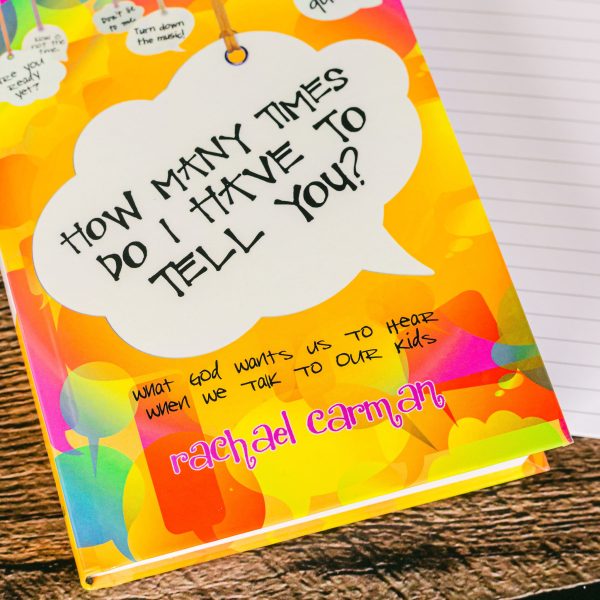 Don't be
Turn down
the music!
Now is
not the
time.
Are you
Ready
yet?
HOW MANY TIMES
DO I HAVE TO
TELL YOU?
what God wants us to hear
when we talk to our kids
rachael carman